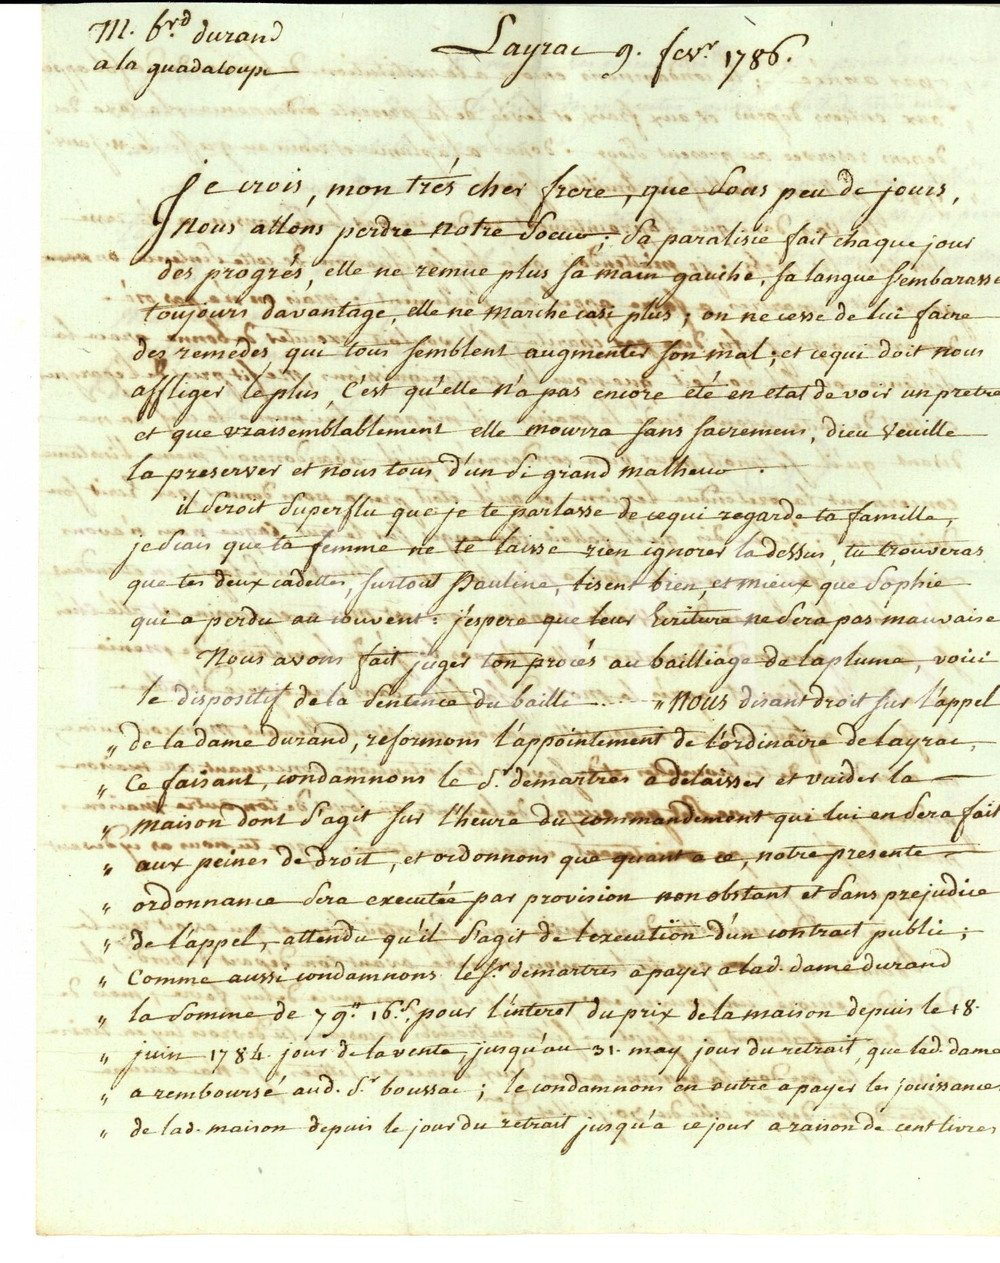 M. b.rd durand
a la guadaloupe
Layrac 9. fevr. 1786.
Je crois, mon trés cher frere, que sous peu de jours,
nous allons perdre notre soeur; sa paralisie fait chaque jour
des progrés, elle ne remue plus sa main gauche, sa langue s'embarasse
toujours davantage, elle ne marche casi plus; on ne cesse de lui faire
des remédes qui tous semblent augmenter son mal; et cequi doit nous
affliger le plus, c'est qu'elle n'a pas encore eté en etat de voir un pretre
et que vraisemblablement elle mourra sans sacremens, dieu veuille
la preserver et nous tous d'un si grand malheur.
il seroit superflu que je te parlasse de cequi regarde ta famille,
je sçais que ta femme ne te laisse rien ignorer la dessus, tu trouveras
que tes deux cadettes, surtout Pauline, lisent bien, et mieux que Sophie
qui a perdu au couvent: j'espere que leur Ecriture ne sera pas mauvaise
Nous avons fait juger ton procés au bailliage de laplume, voici
le dispositif de la sentence du bailli ..... „ nous disant droit sur l'appel
„ de la dame durand, reformons l'appointement de l'ordinaire de layrac,
„ ce faisant, condamnons le sr. demartres a delaisser et vuider la
„ maison dont s'agit sur l'heure du commandement qui lui en sera fait
„ aux peines de droit, et ordonnons que quant a ce, notre presente
„ ordonnance sera executée par provision non obstant et sans prejudice
„ de l'appel, attendu qu'il s'agit de l'execution d'un contrat public;
„ comme aussi condamnons le sr. demartres a payer a lad. dame durand
„ la somme de 79.tt 16.s pour l'interet du prix de la maison depuis le 18.
„ juin 1784. jour de la vente, jusqu'au 31. may jour du retrait, que lad. dame
„ a remboursé aud. sr. boussac; le condamnons en outre a payer les jouissances
„ de lad. maison depuis le jour du retrait jusqu'à ce jour a raison de cent livres